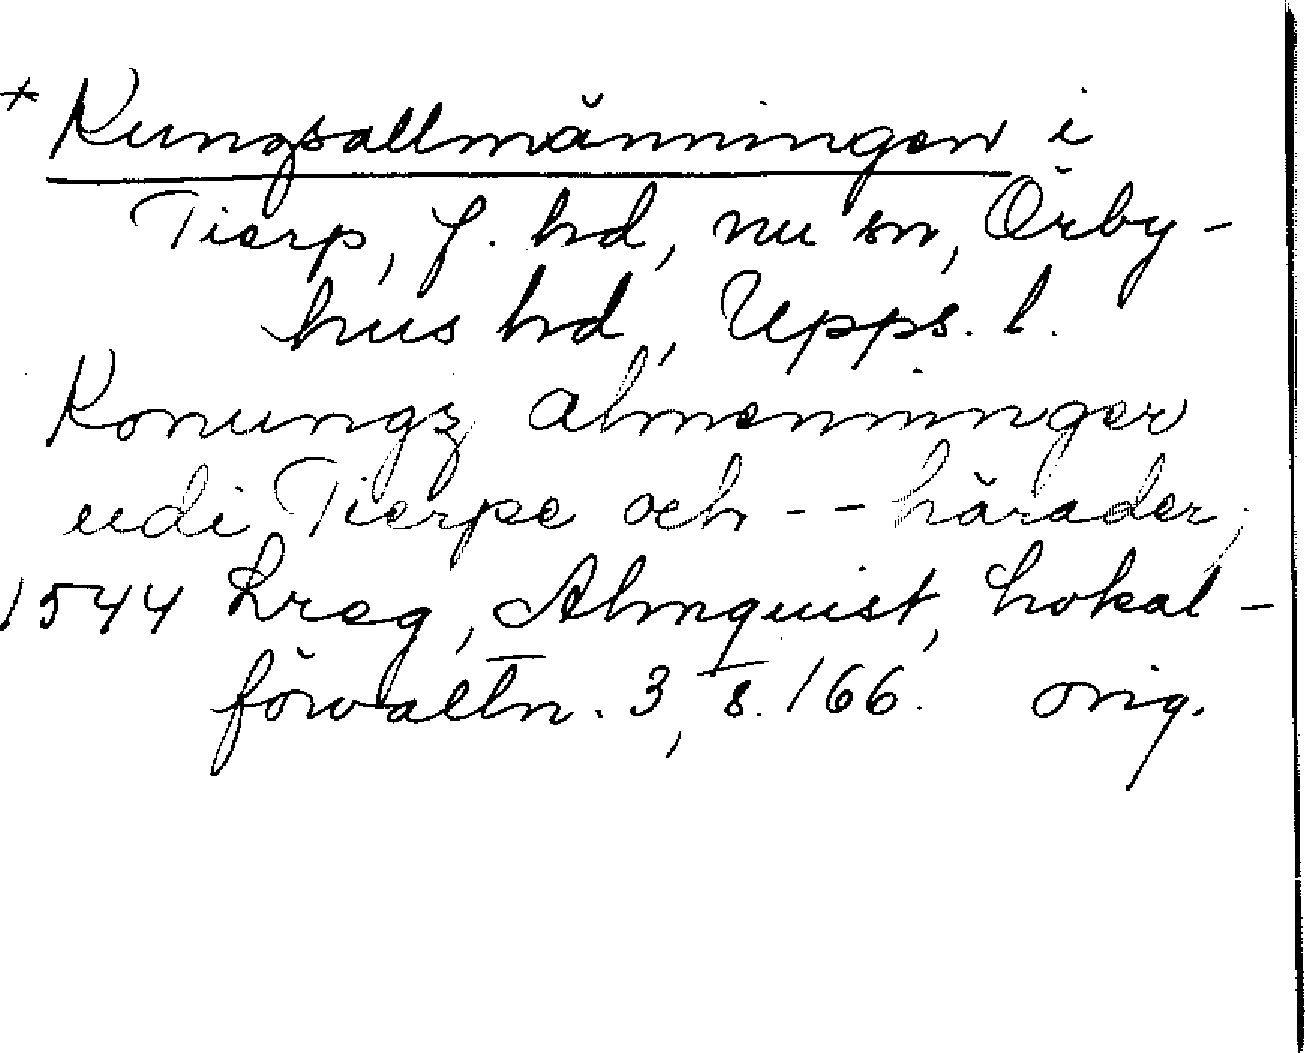 * Kungsallmänningen i
Tierp, f. hd, nu sn, Örby-
hus hd, Upps. l.
Konungz almenninger
udi Tierpe och -- härader;
1544 Lreg, Almquist, Lokal-
förvaltn. 3, s. 166. orig.